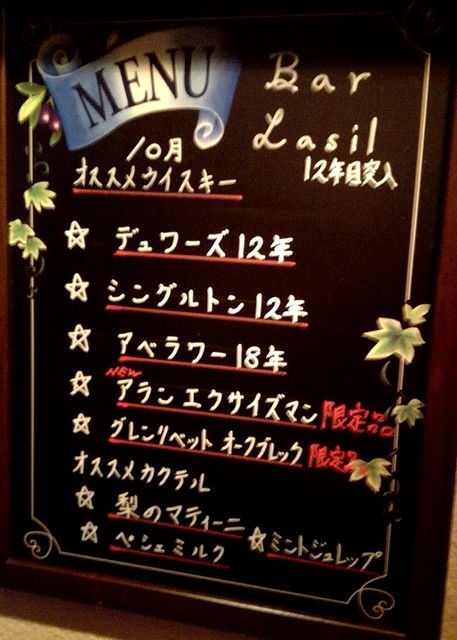 MENU
Bar
Lasil
12年目突入
10月
オススメウイスキー
☆ デュワーズ12年
☆ シングルトン12年
☆ アベラワー18年
NEW
☆ アラン エクサイズマン 限定品
☆ グレンリベット オークブレック 限定品
オススメカクテル
☆ 梨のマティーニ
☆ ペシェミルク ☆ミントジュレップ